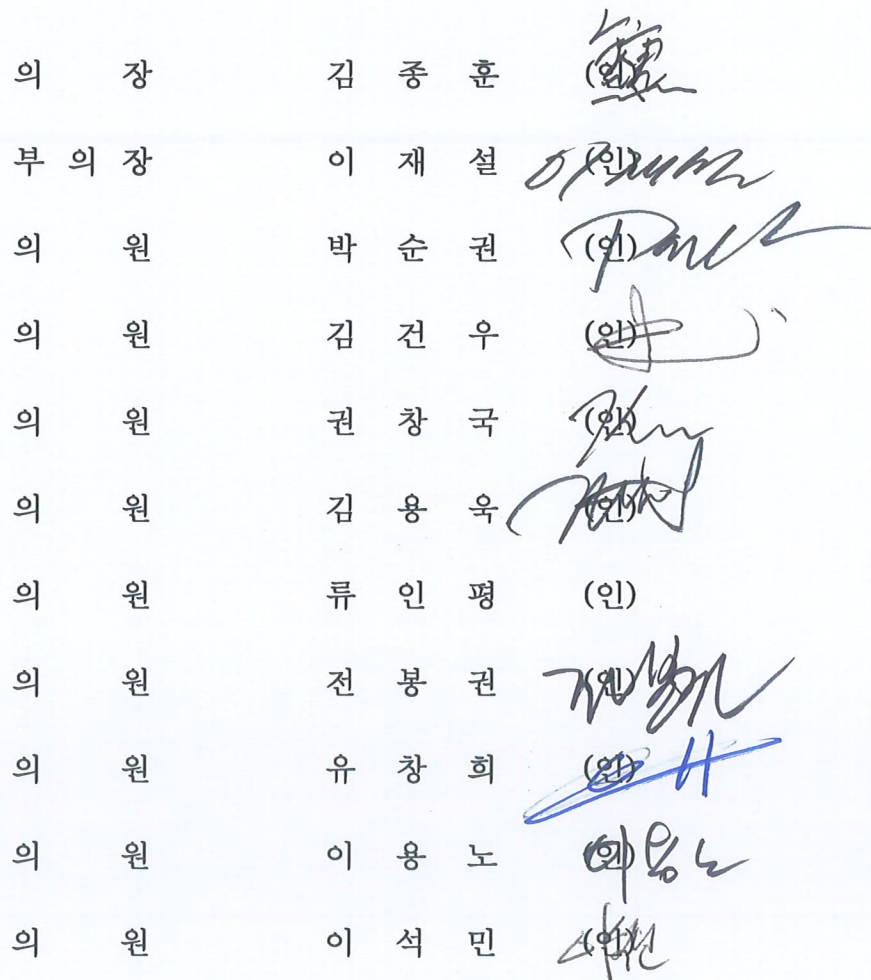 의 장 김 종 훈 (인)
부 의 장 이 재 설 (인)
의 원 박 순 권 (인)
의 원 김 건 우 (인)
의 원 권 창 국 (인)
의 원 김 용 욱 (인)
의 원 류 인 평 (인)
의 원 전 봉 권 (인)
의 원 유 창 희 (인)
의 원 이 용 노 (인) 이용노
의 원 이 석 민 (인)